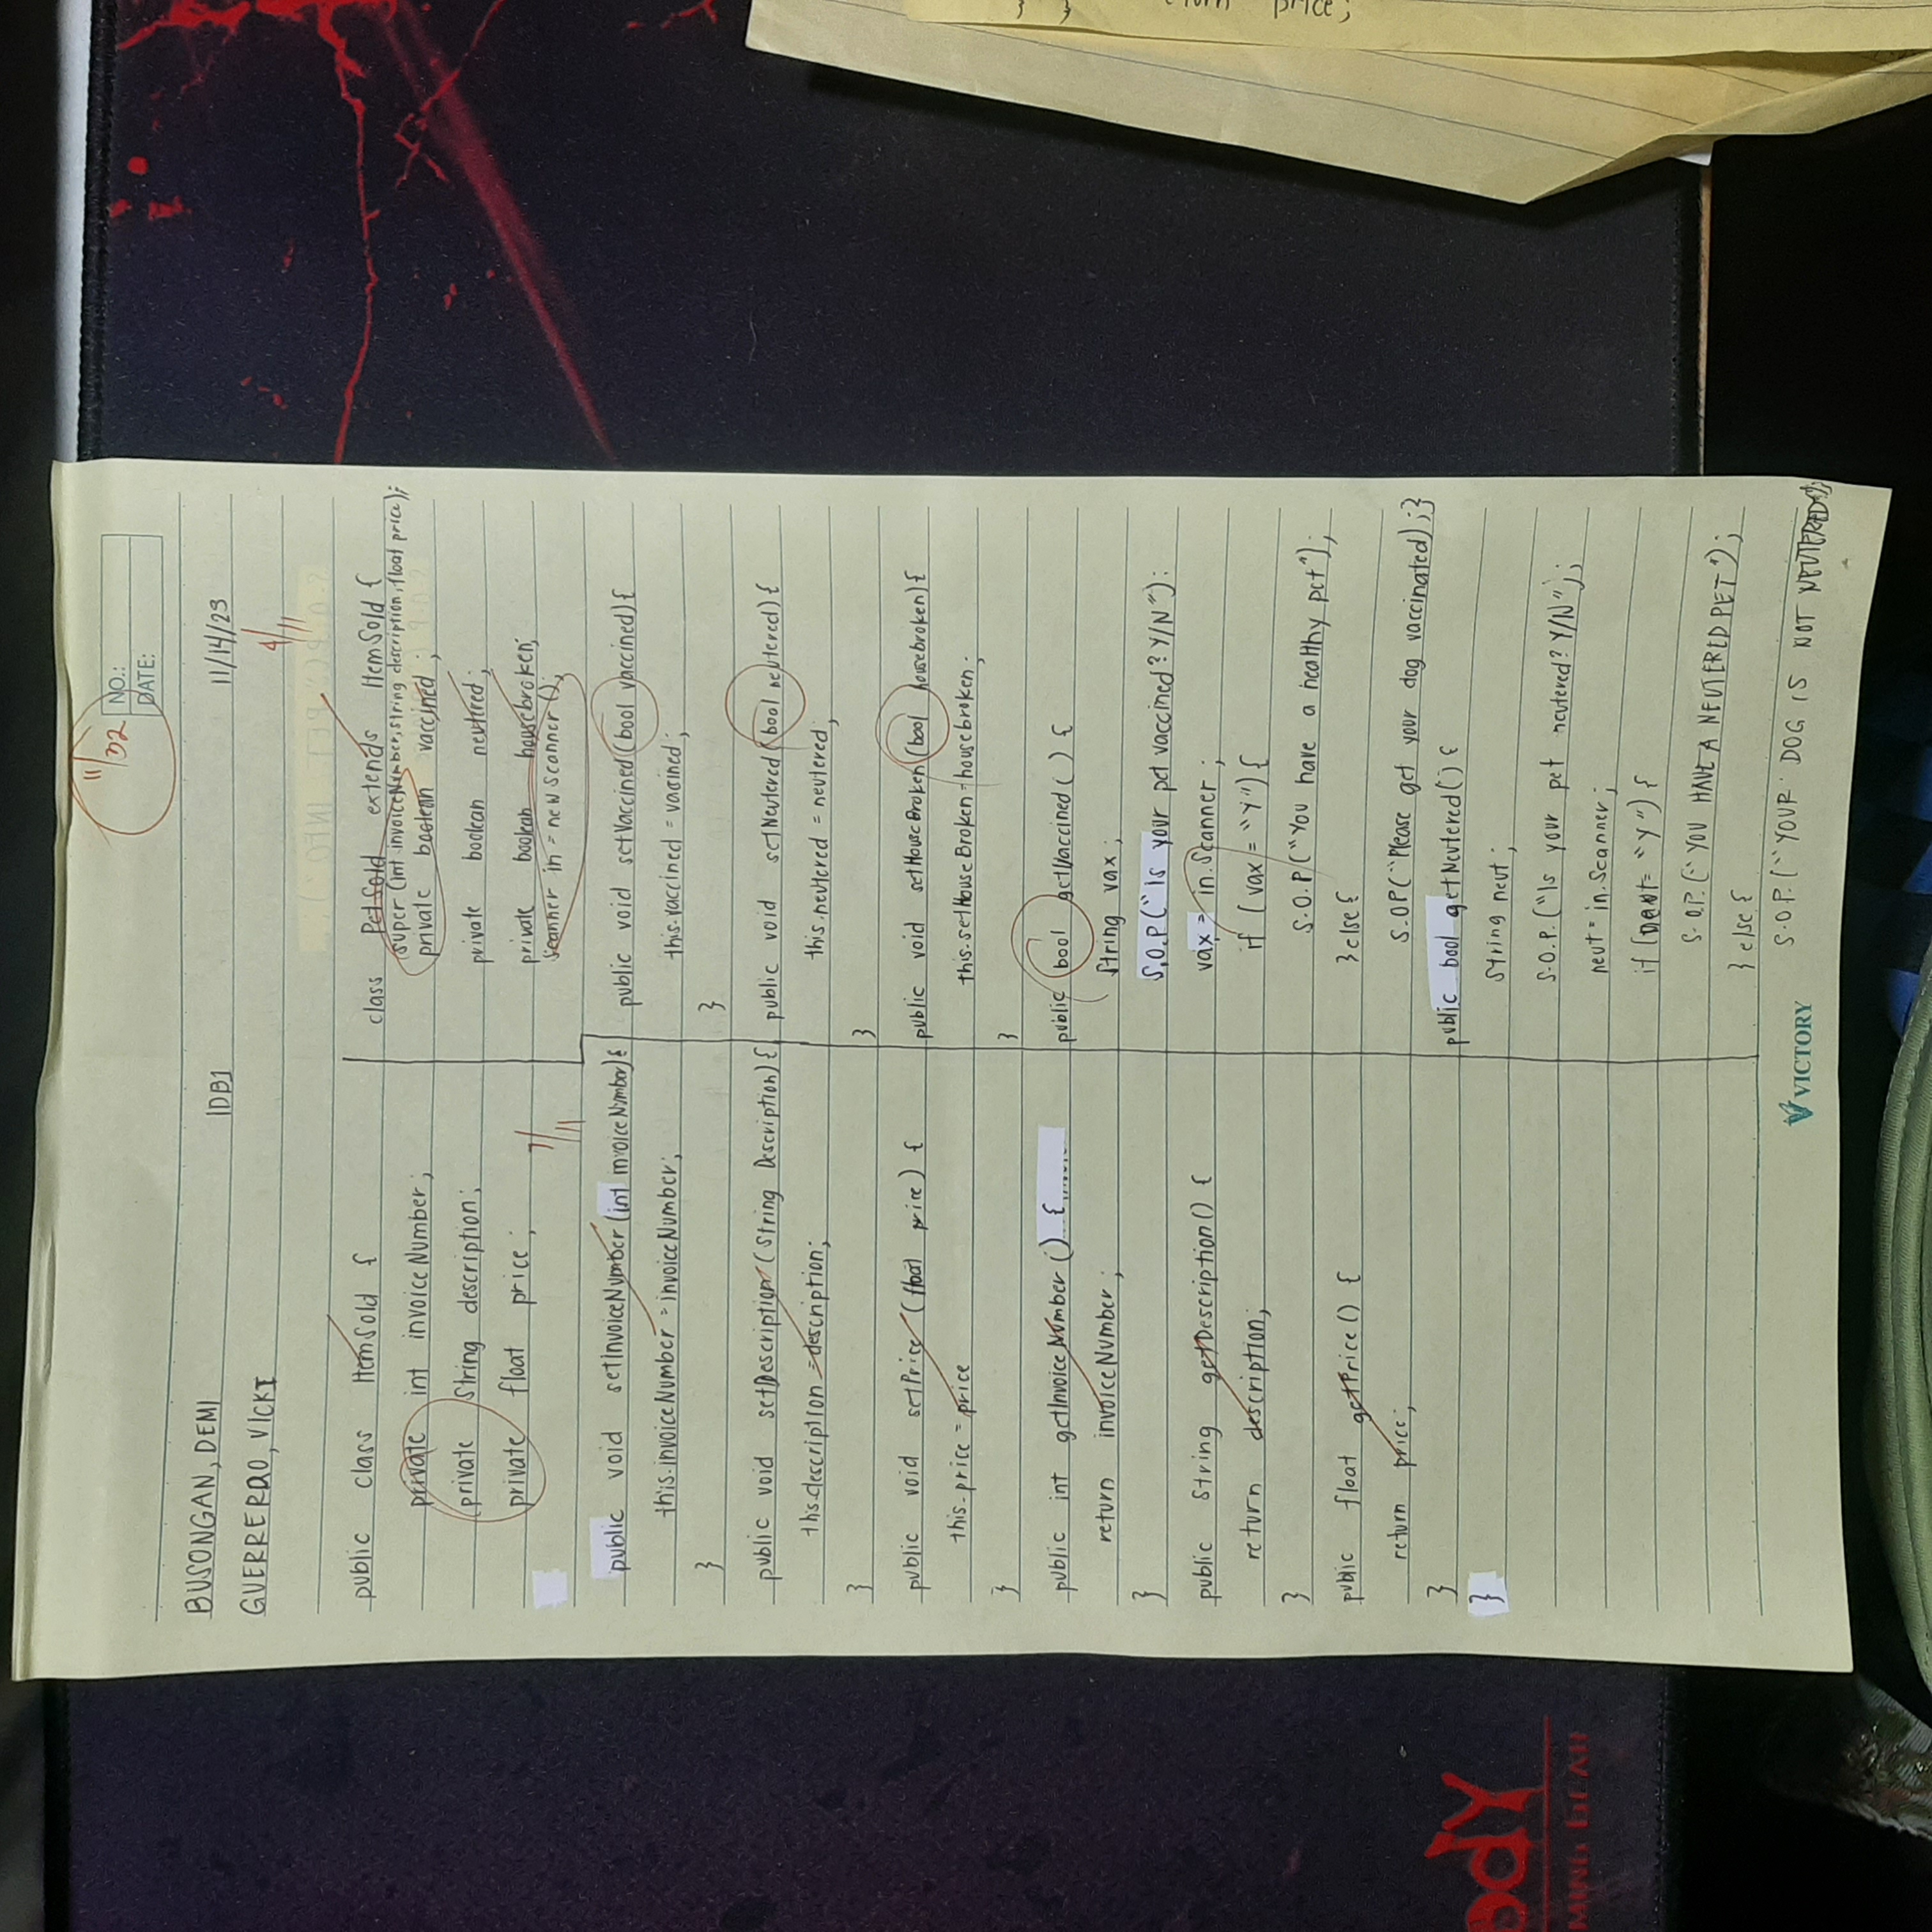 11/32
NO.:
DATE:
BUSONGAN, DEMI IDB1 11/14/23
GUERRERO, VICKI
4/11
public class ItemSold {
private int invoiceNumber;
private String description;
private float price;
7/11
public void setInvoiceNumber (int invoiceNumber){
this.invoiceNumber = invoiceNumber;
}
public void setDescription (String Description){
this.description = description;
}
public void setPrice (float price) {
this.price = price
}
public int getInvoiceNumber () {
return invoiceNumber;
}
public String getDescription() {
return description;
}
public float getPrice() {
return price;
}
}
class PetSold extends ItemSold {
super (int invoiceNumber, string description, float price);
private boolean vaccined;
private boolean neutered;
private boolean housebroken;
Scanner in = new Scanner ();
public void setVaccined (bool vaccined){
this.vaccined = vacined;
}
public void setNeutered (bool neutered){
this.neutered = neutered;
}
public void setHouseBroken (bool housebroken){
this.setHouseBroken = housebroken;
}
public bool getVaccined () {
String vax;
S.O.P ("Is your pet vaccined? Y/N"):
vax = in.Scanner;
if (vax = "Y"){
S.O.P ("You have a healthy pet");
} else {
S.OP ("Please get your dog vaccinated) ;}
public bool getNeutered() {
String neut;
S.O.P. ("Is your pet neutered? Y/N");
neut = in.Scanner;
if (neut = "Y") {
S.O.P. ("YOU HAVE A NEUTERED PET");
} else {
S.O.P. ("YOUR DOG IS NOT NEUTERED");
VICTORY
edY
MING GEAR
price;